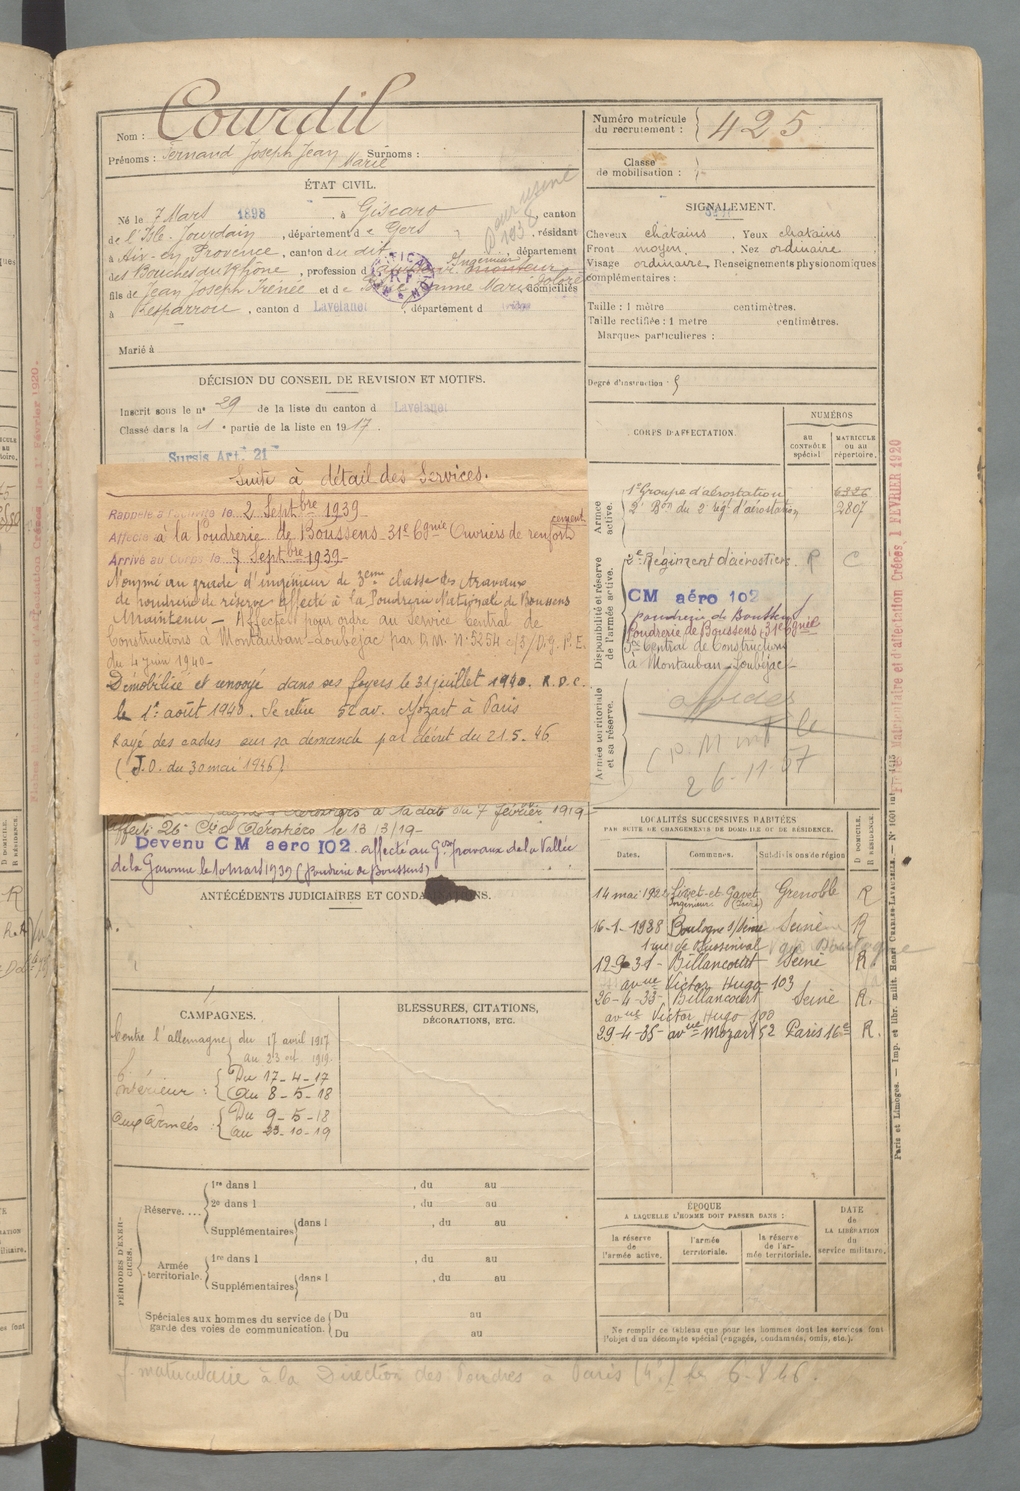 Nom : Courdil
Prénoms : Fernand Joseph Jean Marie Surnoms :
Numéro matricule du recrutement : 425
Classe de mobilisation :
ÉTAT CIVIL.
Né le 7 Mars 1898, à Giscaro, canton
de l'Isle-Jourdain, département de Gers, résidant
à Aix-en-Provence, canton du dit, département
des Bouches du Rhône, profession d Ingénieur monteur
fils de Jean Joseph Irénée et de Jeanne Marie domiciliés
à Resparrou, canton d Lavelanet, département d
Marié à
Pour usine 1938
SIGNALEMENT.
Cheveux chatains Yeux chatains
Front moyen Nez ordinaire
Visage ordinaire Renseignements physionomiques
complémentaires :
Taille : 1 mètre centimètres.
Taille rectifiée : 1 mètre centimètres.
Marques particulières :
Degré d'instruction : 5
DÉCISION DU CONSEIL DE REVISION ET MOTIFS.
Inscrit sous le n° 29 de la liste du canton d Lavelanet
Classé dans la 1e partie de la liste en 1917.
Sursis Art. 21
Suite à détail des Services.
Rappelé à l'activité le 2 Septbre 1939
Affecté à la Poudrerie de Boussens 31e Cgnie Ouvriers de renforcement
Arrivé au Corps le 7 Septbre 1939
Nommé au grade d'ingénieur de 3ème classe des travaux
de poudrerie de réserve affecté à la Poudrerie Nationale de Boussens
Maintenu – Affecté pour ordre au Service Central de
Constructions à Montauban-Loubéjac par D.M. N° 5254
du 4 juin 1940 –
Démobilisé et renvoyé dans ses foyers le 31 juillet 1940. R.D.C.
le 1er août 1940. Se retire 52 av. Mozart à Paris
Rayé des cadres sur sa demande par décret du 21.5.46
(J.O. du 30 mai 1946)
Aérostiers à la date du 7 février 1919
affecté 26e Cie d'Aérostiers le 13/3/19 –
Devenu CM aero 102 affecté au Gpe Travaux de la Vallée
de la Garonne le 10 mars 1939 (Poudrerie de Boussens)
CORPS D'AFFECTATION.
NUMÉROS
AU CONTRÔLE spécial
MATRICULE ou au répertoire.
Armée active.
1er Groupe d'aérostation 6326
2e Bon du 2e Rgt d'aérostation 2807
Disponibilité et réserve de l'armée active.
2e Régiment d'aérostiers R C
CM aéro 102
poudrerie de Boussens
Poudrerie de Boussens, 31e Cgnie
Sce Central de Constructions
à Montauban-Loubéjac
Armée territoriale et sa réserve.
26-11-57
LOCALITÉS SUCCESSIVES HABITÉES
PAR SUITE DE CHANGEMENTS DE DOMICILE OU DE RÉSIDENCE.
Dates. Communes. Subdivisions de région D DOMICILE. R RÉSIDENCE.
14 mai 192 Livet-et-Gavet Grenoble R
Ingénieur (Isère)
16-1-1928 Boulogne s/Seine Seine R
1 rue de Buzenval
12-9-31- Billancourt Seine R.
avue Victor Hugo 103
26-4-33- Billancourt Seine R.
avue Victor Hugo 100
29-4-35- avue Mozart 52 Paris 16e R.
ANTÉCÉDENTS JUDICIAIRES ET CONDAMNATIONS.
CAMPAGNES.
Contre l'allemagne du 17 avril 1917
au 23 oct 1919
Intérieur : Du 17-4-17
au 8-5-18
Aux Armées : Du 9-5-18
au 23-10-19
BLESSURES, CITATIONS,
DÉCORATIONS, ETC.
PÉRIODES D'EXERCICES.
Réserve.... 1re dans l , du au
2e dans l , du au
Supplémentaires dans l , du au
Armée territoriale. 1re dans l , du au
Supplémentaires dans l , du au
Spéciales aux hommes du service de
garde des voies de communication. Du au
Du au
ÉPOQUE
A LAQUELLE L'HOMME DOIT PASSER DANS :
la réserve de l'armée active.
l'armée territoriale.
la réserve de l'armée territoriale.
DATE de LA LIBÉRATION du service militaire.
Ne remplir ce tableau que pour les hommes dont les services font
l'objet d'un décompte spécial (engagés, condamnés, omis, etc.).
matriculaire à la Direction des Poudres à Paris (4e) le 6-8-46.
Paris et Limoges. — Imp. et libr. milit. Henri CHARLES-LAVAUZELLE.